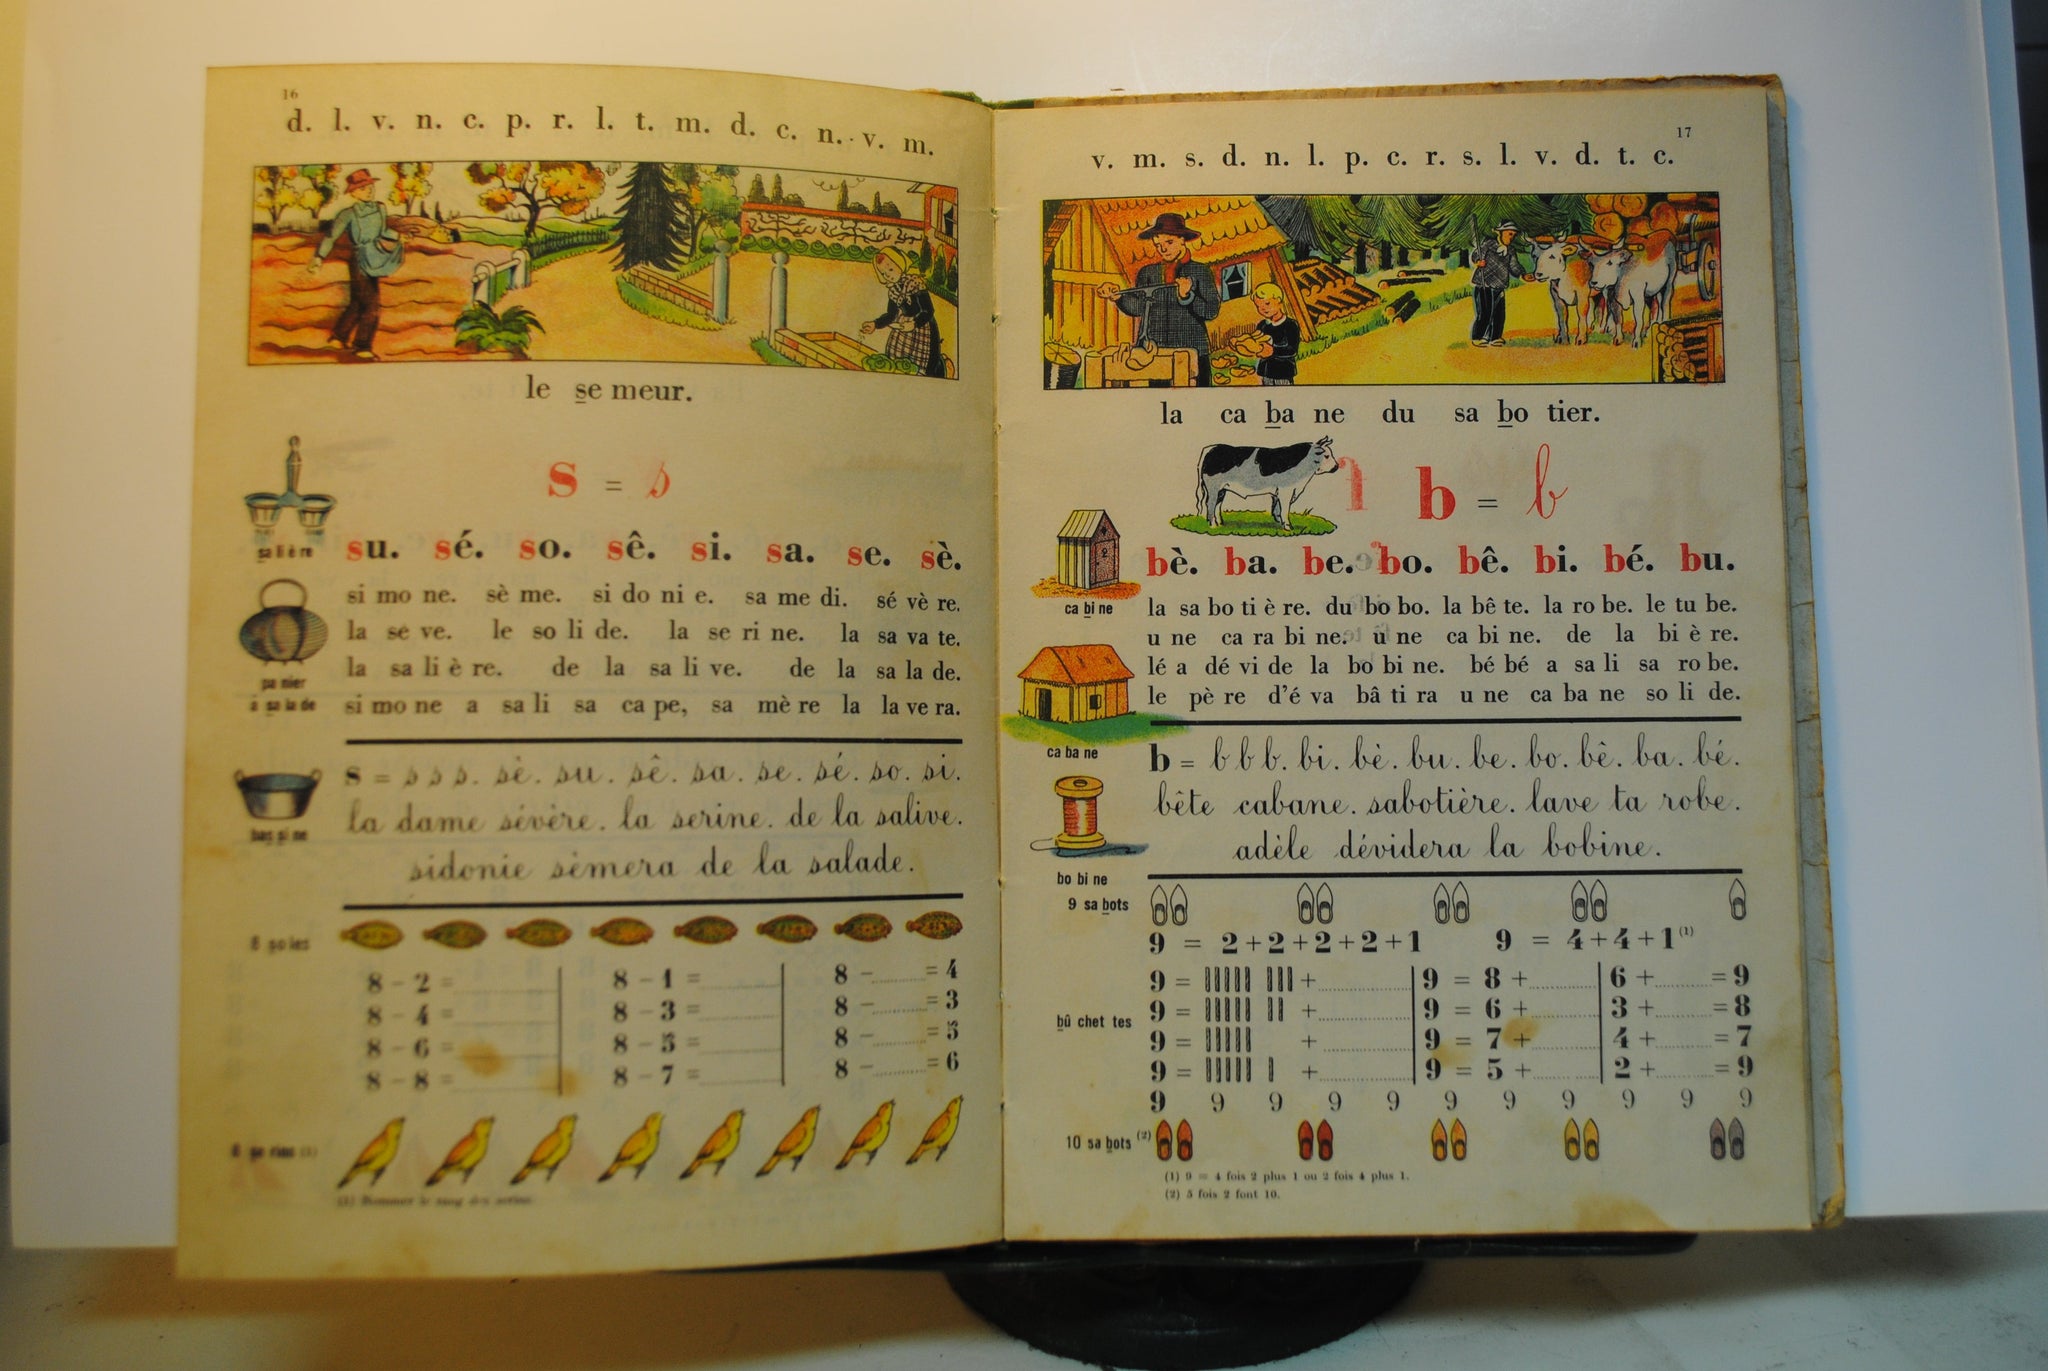 16
d. l. v. n. c. p. r. l. t. m. d. c. n. v. m.
le se meur.
s = s
sa li è re
su. sé. so. sê. si. sa. se. sè.
si mo ne. sè me. si do ni e. sa me di. sé vè re.
la sè ve. le so li de. la se ri ne. la sa va te.
la sa li è re. de la sa li ve. de la sa la de.
si mo ne a sa li sa ca pe, sa mè re la la ve ra.
pa nier
à sa la de
s = s s s. sè. su. sê. sa. se. sé. so. si.
la dame sévère. la serine. de la salive.
sidonie sèmera de la salade.
bas si ne
8 so les
8 - 2 = 8 - 1 = 8 - = 4
8 - 4 = 8 - 3 = 8 - = 3
8 - 6 = 8 - 5 = 8 - = 5
8 - 8 = 8 - 7 = 8 - = 6
8 se rins (1)
(1) Nommer le rang des serins.
17
v. m. s. d. n. l. p. c. r. s. l. v. d. t. c.
la ca ba ne du sa bo tier.
b = b
bè. ba. be. bo. bê. bi. bé. bu.
ca bi ne
la sa bo ti è re. du bo bo. la bê te. la ro be. le tu be.
u ne ca ra bi ne. u ne ca bi ne. de la bi è re.
lé a dé vi de la bo bi ne. bé bé a sa li sa ro be.
le pè re d'é va bâ ti ra u ne ca ba ne so li de.
ca ba ne
b = b b b. bi. bè. bu. be. bo. bê. ba. bé.
bête cabane. sabotière. lave ta robe.
adèle dévidera la bobine.
bo bi ne
9 sa bots
9 = 2 + 2 + 2 + 2 + 1 9 = 4 + 4 + 1 (1)
9 = + 9 = 8 + 6 + = 9
9 = + 9 = 6 + 3 + = 8
bû chet tes
9 = + 9 = 7 + 4 + = 7
9 = + 9 = 5 + 2 + = 9
9 9 9 9 9 9 9 9 9 9 9
10 sa bots (2)
(1) 9 = 4 fois 2 plus 1 ou 2 fois 4 plus 1.
(2) 5 fois 2 font 10.